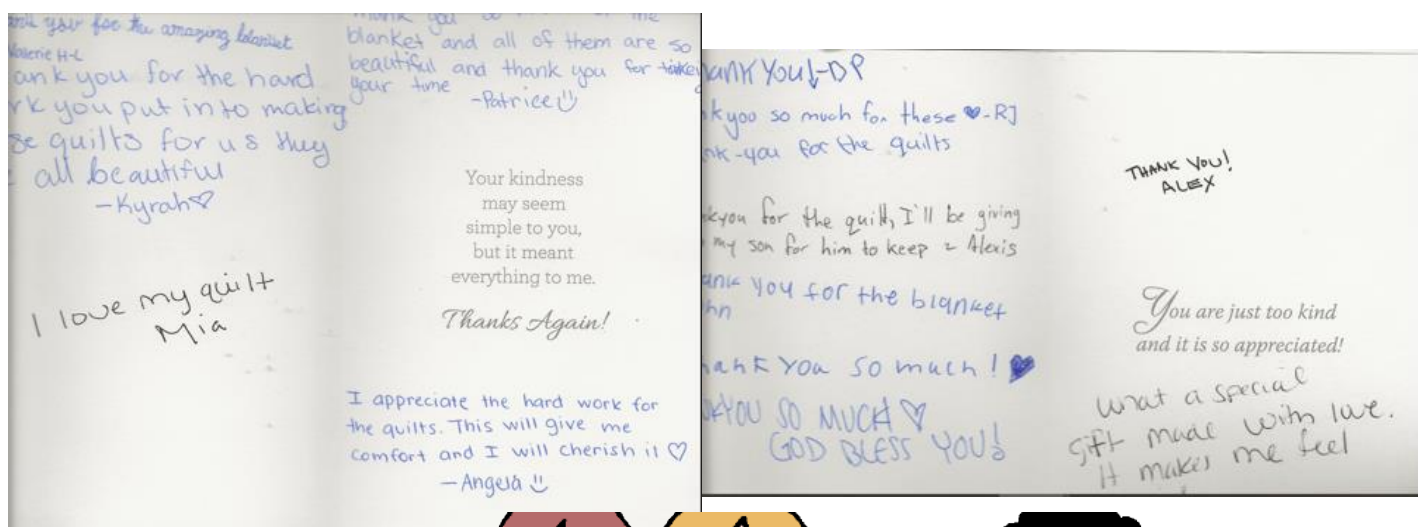 you for the amazing blanket
Valerie H-L
ank you for the hard
rk you put into making
se quilts for us they
all beautiful
-Kyrah
I love my quilt
Mia
blanket and all of them are so
beautiful and thank you for
your time
-Patrice
Your kindness
may seem
simple to you,
but it meant
everything to me.
Thanks Again!
I appreciate the hard work for
the quilts. This will give me
comfort and I will cherish it
-Angela
hank You! -DP
kyou so much for these -RJ
nk-you for the quilts
kyou for the quilt, I'll be giving
my son for him to keep - Alexis
ank you for the blanket
hn
hank You so much!
KYOU SO MUCH
GOD BLESS YOU!
THANK YOU!
ALEX
You are just too kind
and it is so appreciated!
What a special
gift made with love.
It makes me feel